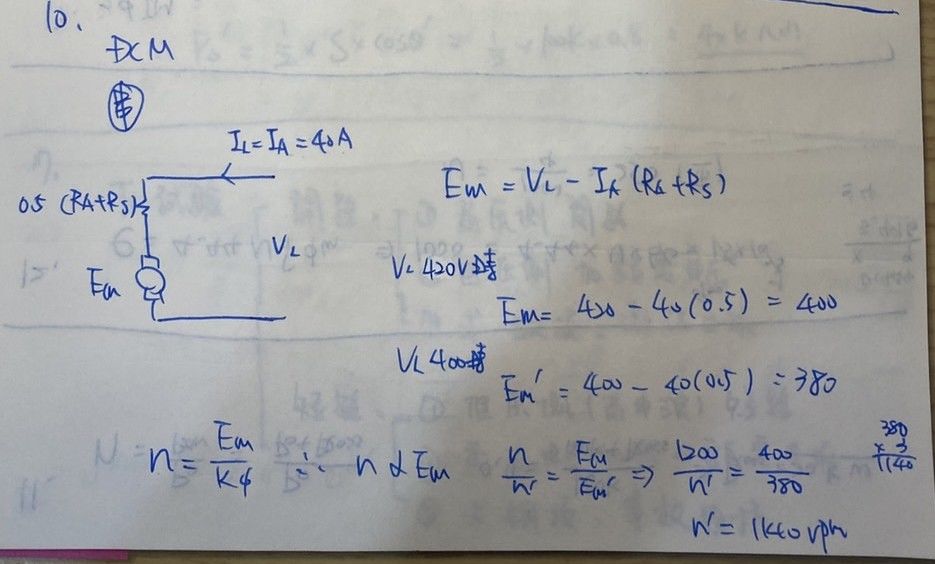 10.
DCM
串
I_L = I_A = 40A
0.5 (R_A+R_S)
V_L
E_m
E_m = V_L - I_A (R_A+R_S)
V_L 420V時
E_m = 420 - 40(0.5) = 400
V_L 400時
E_m' = 400 - 40(0.5) = 380
n = E_m / Kφ ∴ n α E_m n/n' = E_m/E_m' ⇒ 1200/n' = 400/380
n' = 1140 rpm
380
× 3
1140